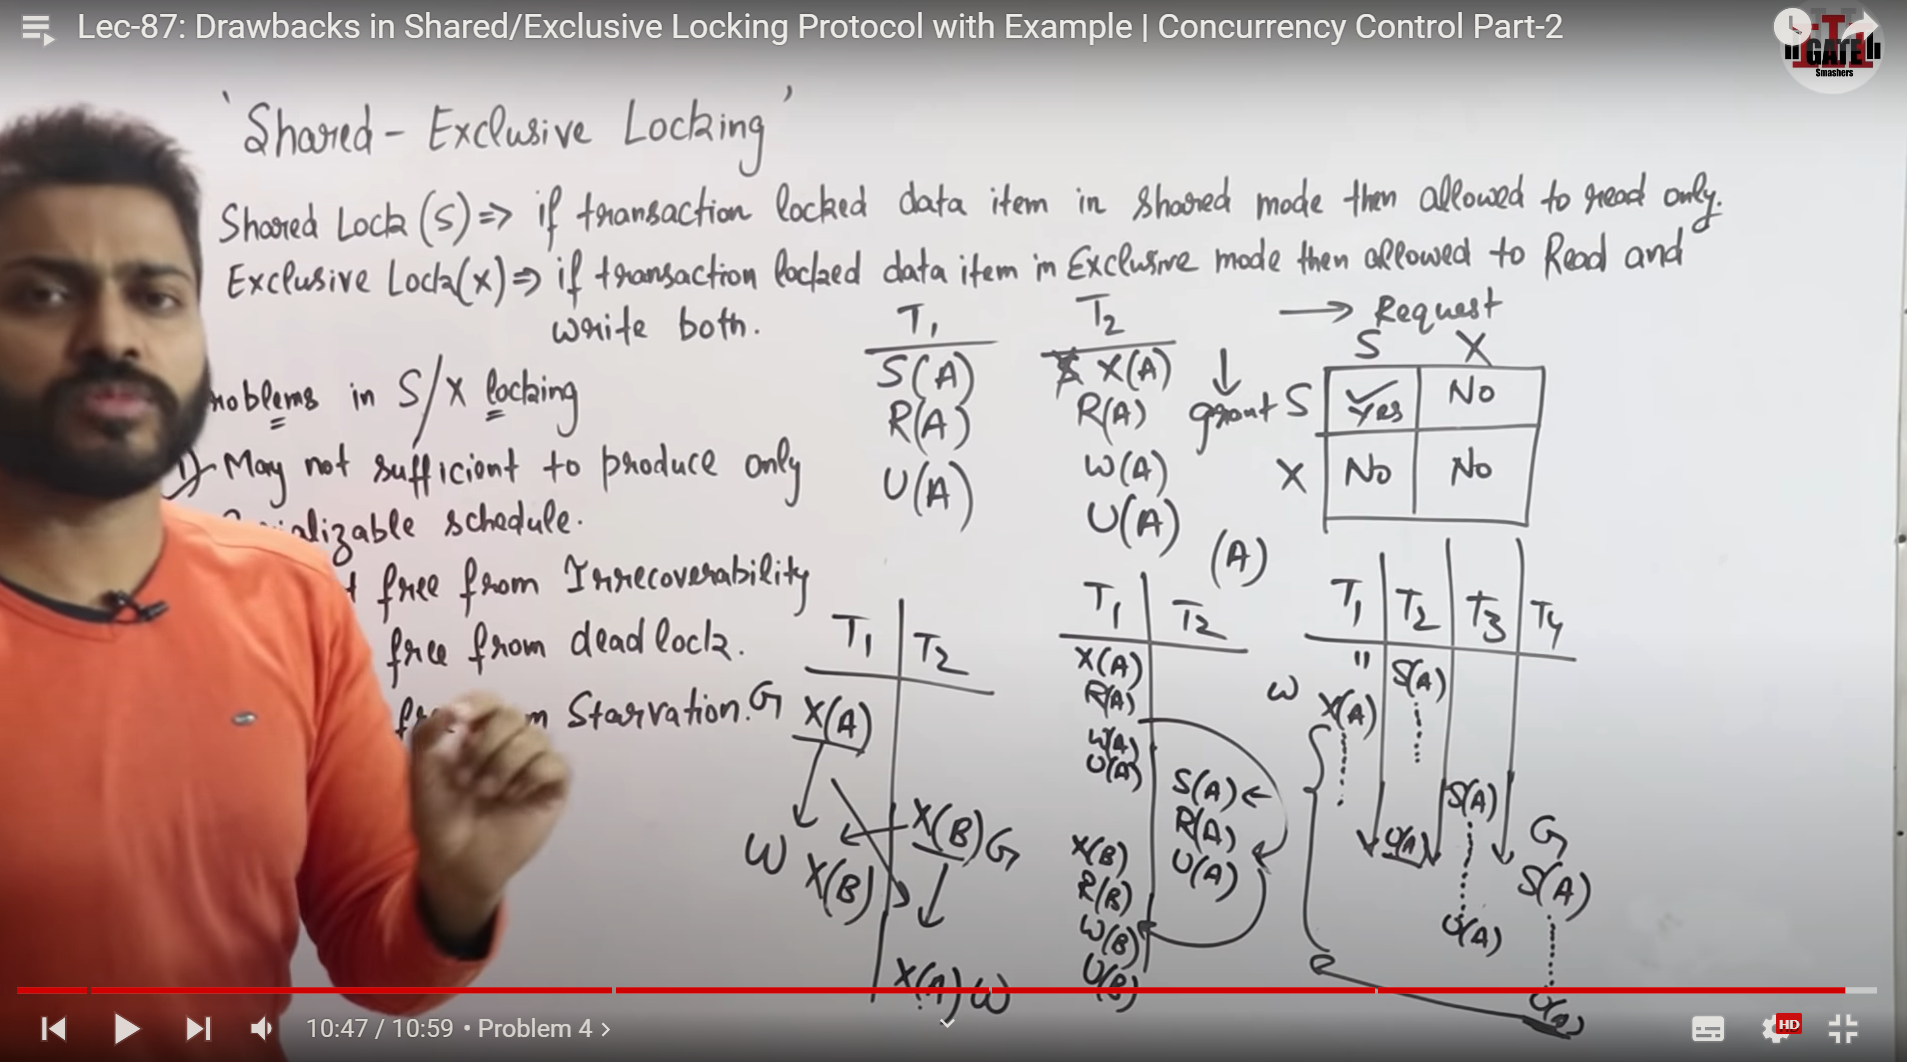 Lec-87: Drawbacks in Shared/Exclusive Locking Protocol with Example | Concurrency Control Part-2
GATE
Smashers
'Shared - Exclusive Locking'
Shared Lock (S) => if transaction locked data item in shared mode then allowed to read only.
Exclusive Lock(X) => if transaction locked data item in Exclusive mode then allowed to Read and
write both.
T1 T2
S(A) X(A)
R(A) R(A)
U(A) W(A)
U(A)
→ Request
S X
grant S Yes No
X No No
roblems in S/X locking
1) May not sufficient to produce only
ializable schedule.
t free from Irrecoverability
free from deadlock.
m Starvation.
T1 T2
G X(A)
X(B) G
W X(B)
X(A) W
T1 T2
X(A)
R(A)
W(A)
U(A)
S(A)
R(A)
U(A)
X(B)
R(B)
W(B)
U(B)
(A)
T1 T2 T3 T4
" S(A)
W X(A)
S(A)
U(A)
G
S(A)
U(A)
U(A)
10:47 / 10:59 • Problem 4 >
HD